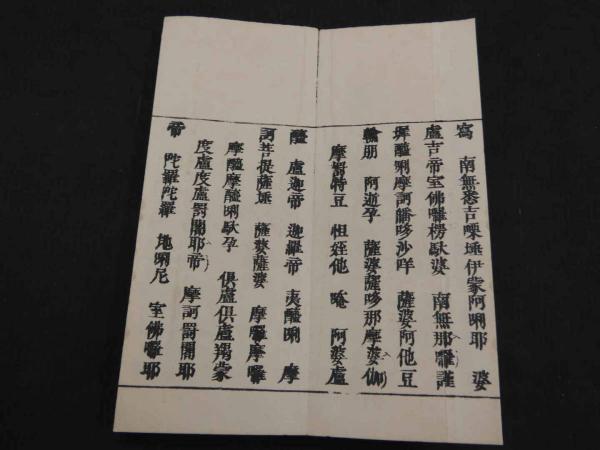 寫 南無悉吉㗚埵伊蒙阿唎耶 婆
盧吉帝室佛囉楞馱婆 南無那囉謹
墀醯唎摩訶皤哆沙咩 薩婆阿他豆
輸朋 阿逝孕 薩婆薩哆那摩婆伽
摩罰特豆 怛姪他 唵 阿婆盧
醯 盧迦帝 迦羅帝 夷醯唎 摩
訶菩提薩埵 薩婆薩婆 摩囉摩囉
摩醯摩醯唎馱孕 俱盧俱盧羯蒙
度盧度盧罰闍耶帝 摩訶罰闍耶
帝 陀羅陀羅 地唎尼 室佛囉耶